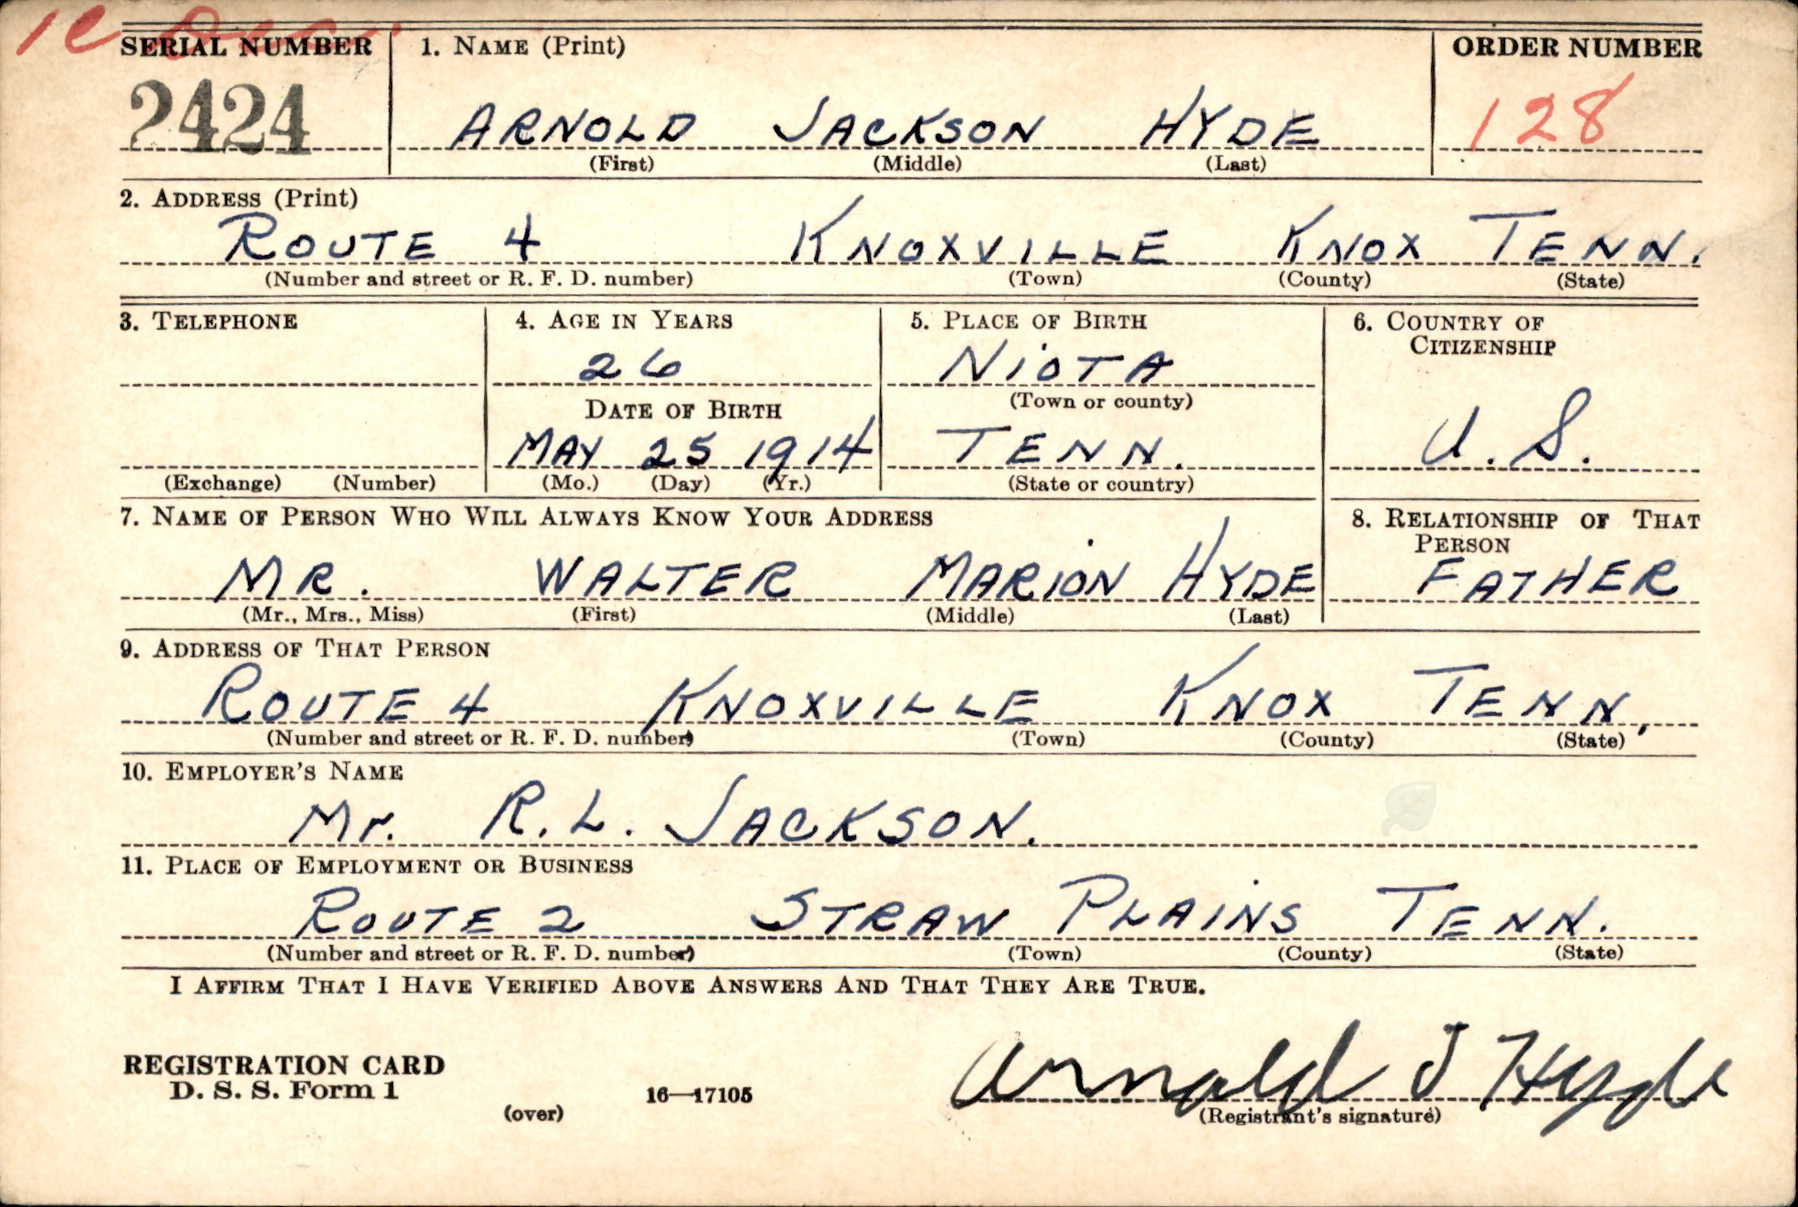 SERIAL NUMBER 1. NAME (Print) ORDER NUMBER
2424 ARNOLD JACKSON HYDE 128
(First) (Middle) (Last)
2. ADDRESS (Print)
ROUTE 4 KNOXVILLE KNOX TENN.
(Number and street or R. F. D. number) (Town) (County) (State)
3. TELEPHONE 4. AGE IN YEARS 5. PLACE OF BIRTH 6. COUNTRY OF
CITIZENSHIP
26 NIOTA
DATE OF BIRTH (Town or county)
MAY 25 1914 TENN. U. S.
(Exchange) (Number) (Mo.) (Day) (Yr.) (State or country)
7. NAME OF PERSON WHO WILL ALWAYS KNOW YOUR ADDRESS 8. RELATIONSHIP OF THAT
PERSON
MR. WALTER MARION HYDE FATHER
(Mr., Mrs., Miss) (First) (Middle) (Last)
9. ADDRESS OF THAT PERSON
ROUTE 4 KNOXVILLE KNOX TENN.
(Number and street or R. F. D. number) (Town) (County) (State)
10. EMPLOYER'S NAME
Mr. R. L. JACKSON.
11. PLACE OF EMPLOYMENT OR BUSINESS
ROUTE 2 STRAW PLAINS TENN.
(Number and street or R. F. D. number) (Town) (County) (State)
I AFFIRM THAT I HAVE VERIFIED ABOVE ANSWERS AND THAT THEY ARE TRUE.
REGISTRATION CARD
D. S. S. Form 1
(over) 16—17105
Arnold J Hyde
(Registrant's signature)